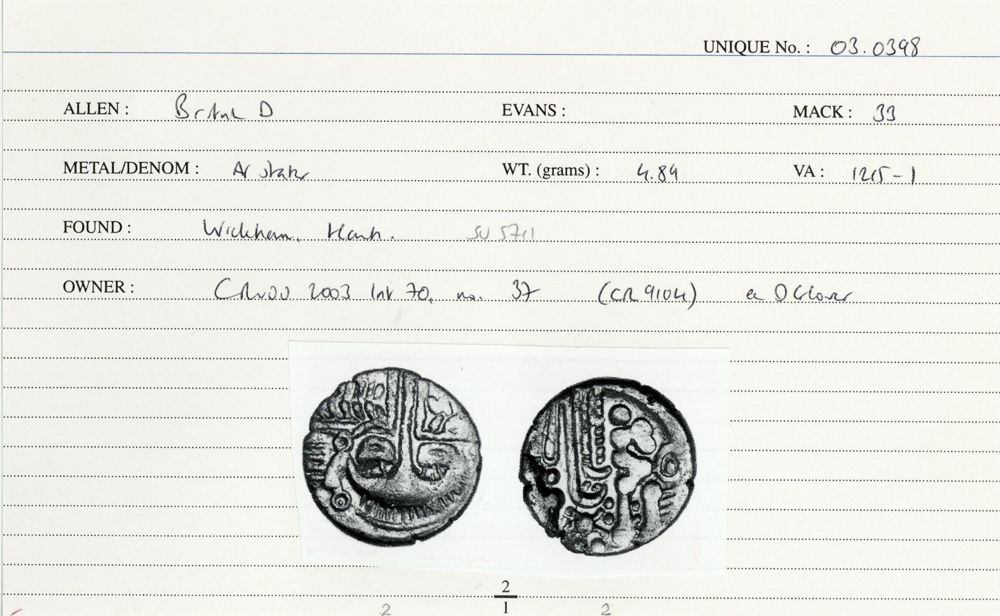 UNIQUE No. : 03.0398
ALLEN : British D EVANS : MACK : 33
METAL/DENOM : Ar stater WT. (grams) : 4.84 VA : 1215-1
FOUND : Wickham, Hants. SU 5711
OWNER : 2003 Inv 70, no. 37 (CR 9104) ex D Glover
2
2 1 2